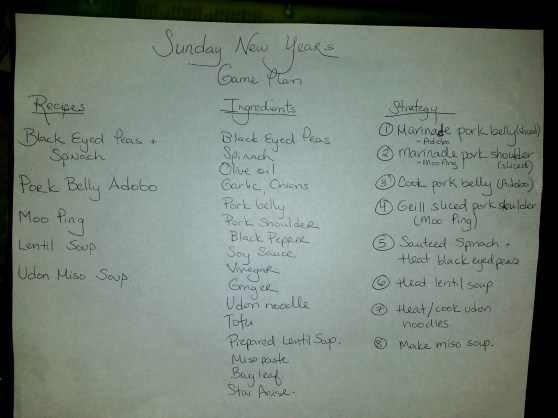 Sunday New Years
Game Plan
Recipes
Black Eyed Peas +
Spinach
Pork Belly Adobo
Moo Ping
Lentil Soup
Udon Miso Soup
Ingredients
Black Eyed Peas
Spinach
Olive oil
Garlic, Onions
Pork belly
Pork Shoulder
Black Pepper
Soy Sauce
Vinegar
Ginger
Udon noodle
Tofu
Prepared Lentil Soup.
Miso paste
Bay leaf.
Star Anise.
Strategy
① Marinade pork belly (sliced)
- Adobo
② Marinade pork shoulder
- Moo Ping (sliced)
③ Cook pork belly (Adobo)
④ Grill sliced pork shoulder
(Moo Ping)
⑤ Sauteed Spinach +
Heat black eyed peas
⑥ Heat lentil soup
⑦ Heat/cook udon
noodles
⑧ Make miso soup.